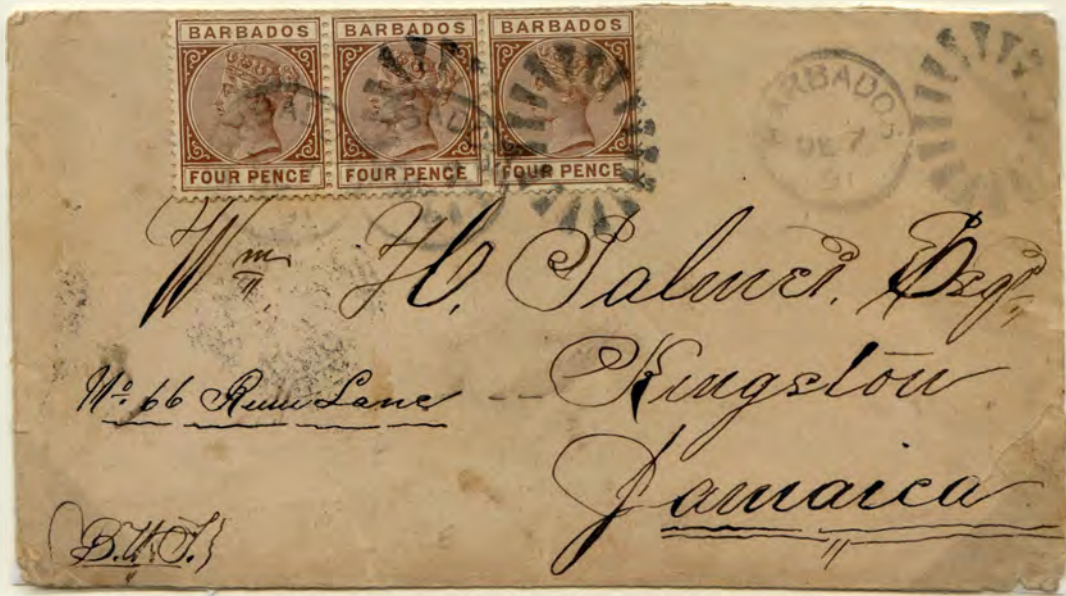 BARBADOS BARBADOS BARBADOS
FOUR PENCE FOUR PENCE FOUR PENCE
BARBADOS
DE 7
91
Wm H. Palmer. Esqr.
No 66 Rum Lane -- Kingston
Jamaica
(B.W.I.)